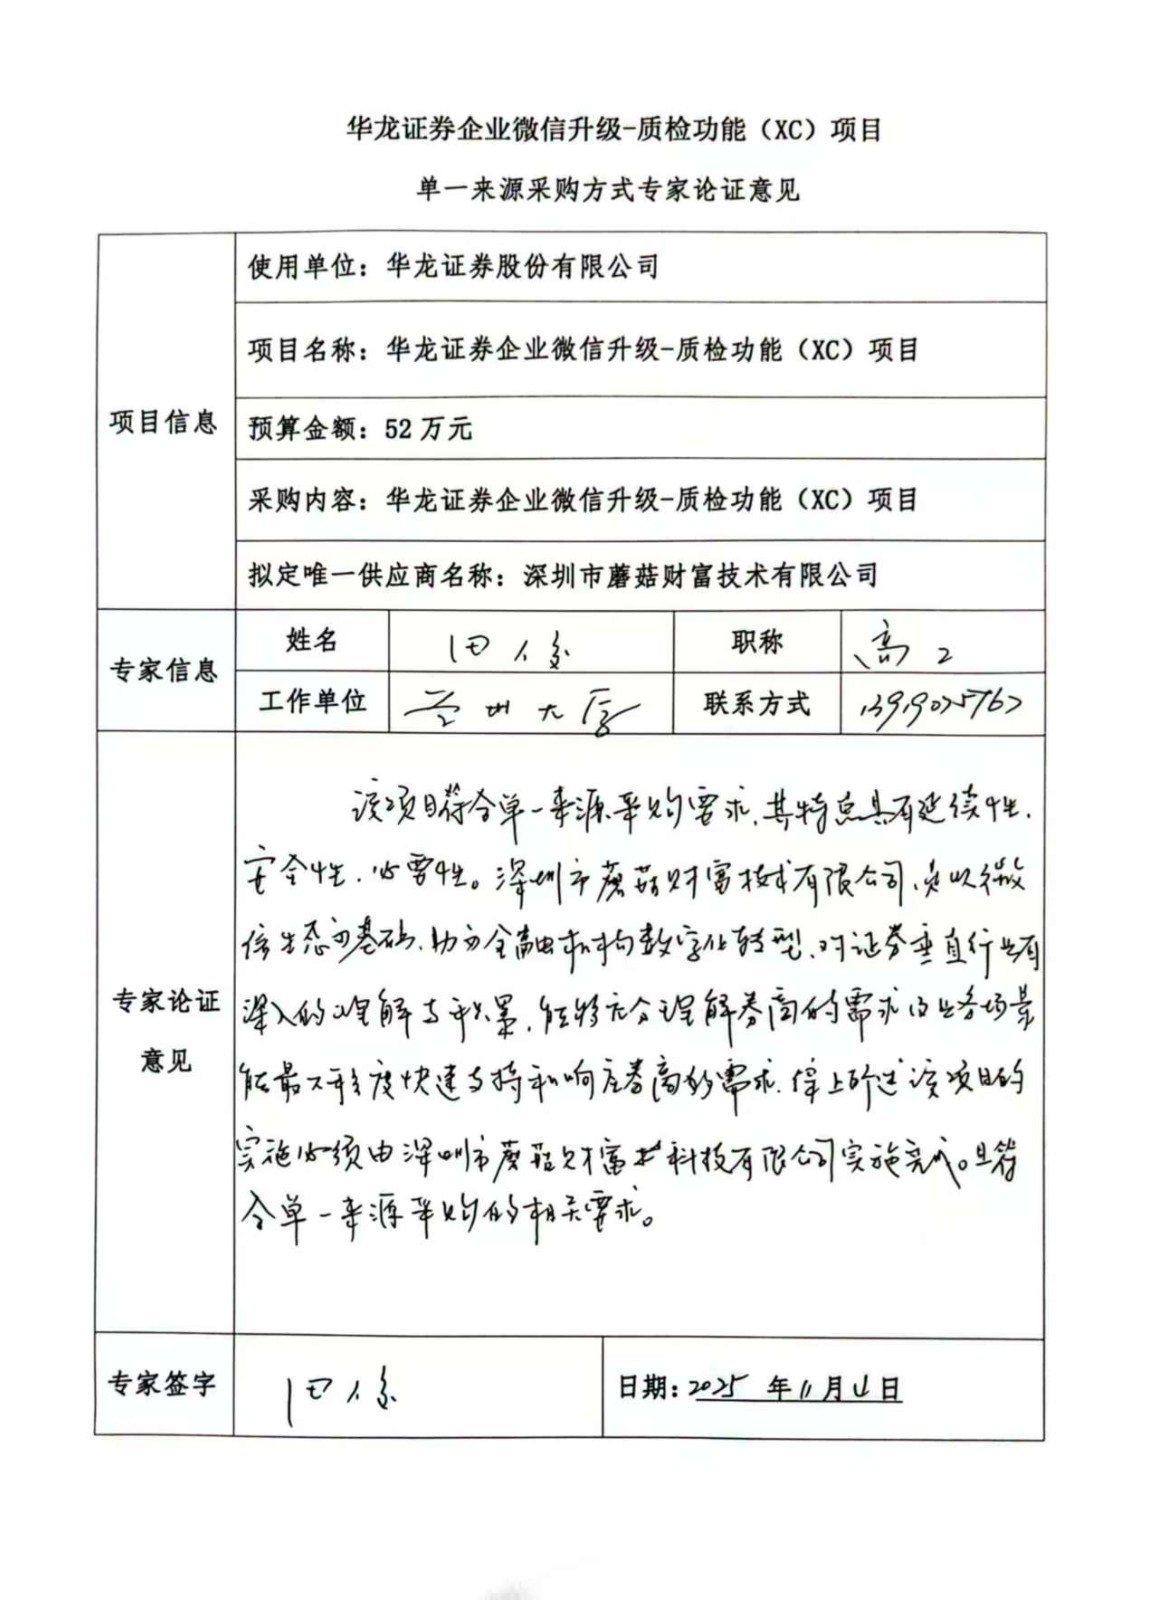 华龙证券企业微信升级-质检功能（XC）项目
单一来源采购方式专家论证意见
项目信息
使用单位：华龙证券股份有限公司
项目名称：华龙证券企业微信升级-质检功能（XC）项目
预算金额：52 万元
采购内容：华龙证券企业微信升级-质检功能（XC）项目
拟定唯一供应商名称：深圳市蘑菇财富技术有限公司
专家信息
姓名
职称 高工
工作单位 兰州大学
联系方式
专家论证
意见
该项目符合单一来源采购要求,其特点具有延续性,
安全性,必要性。深圳市蘑菇财富技术有限公司,是以微
信生态为基础,助力金融机构数字化转型,对证券垂直行业有
深入的理解与积累,能够充分理解券商的需求及业务场景
能最大程度快速支持和响应券商的需求,综上所述该项目的
实施必须由深圳市蘑菇财富科技有限公司实施完成。且符
合单一来源采购的相关要求。
专家签字
日期：2025 年 11 月 日